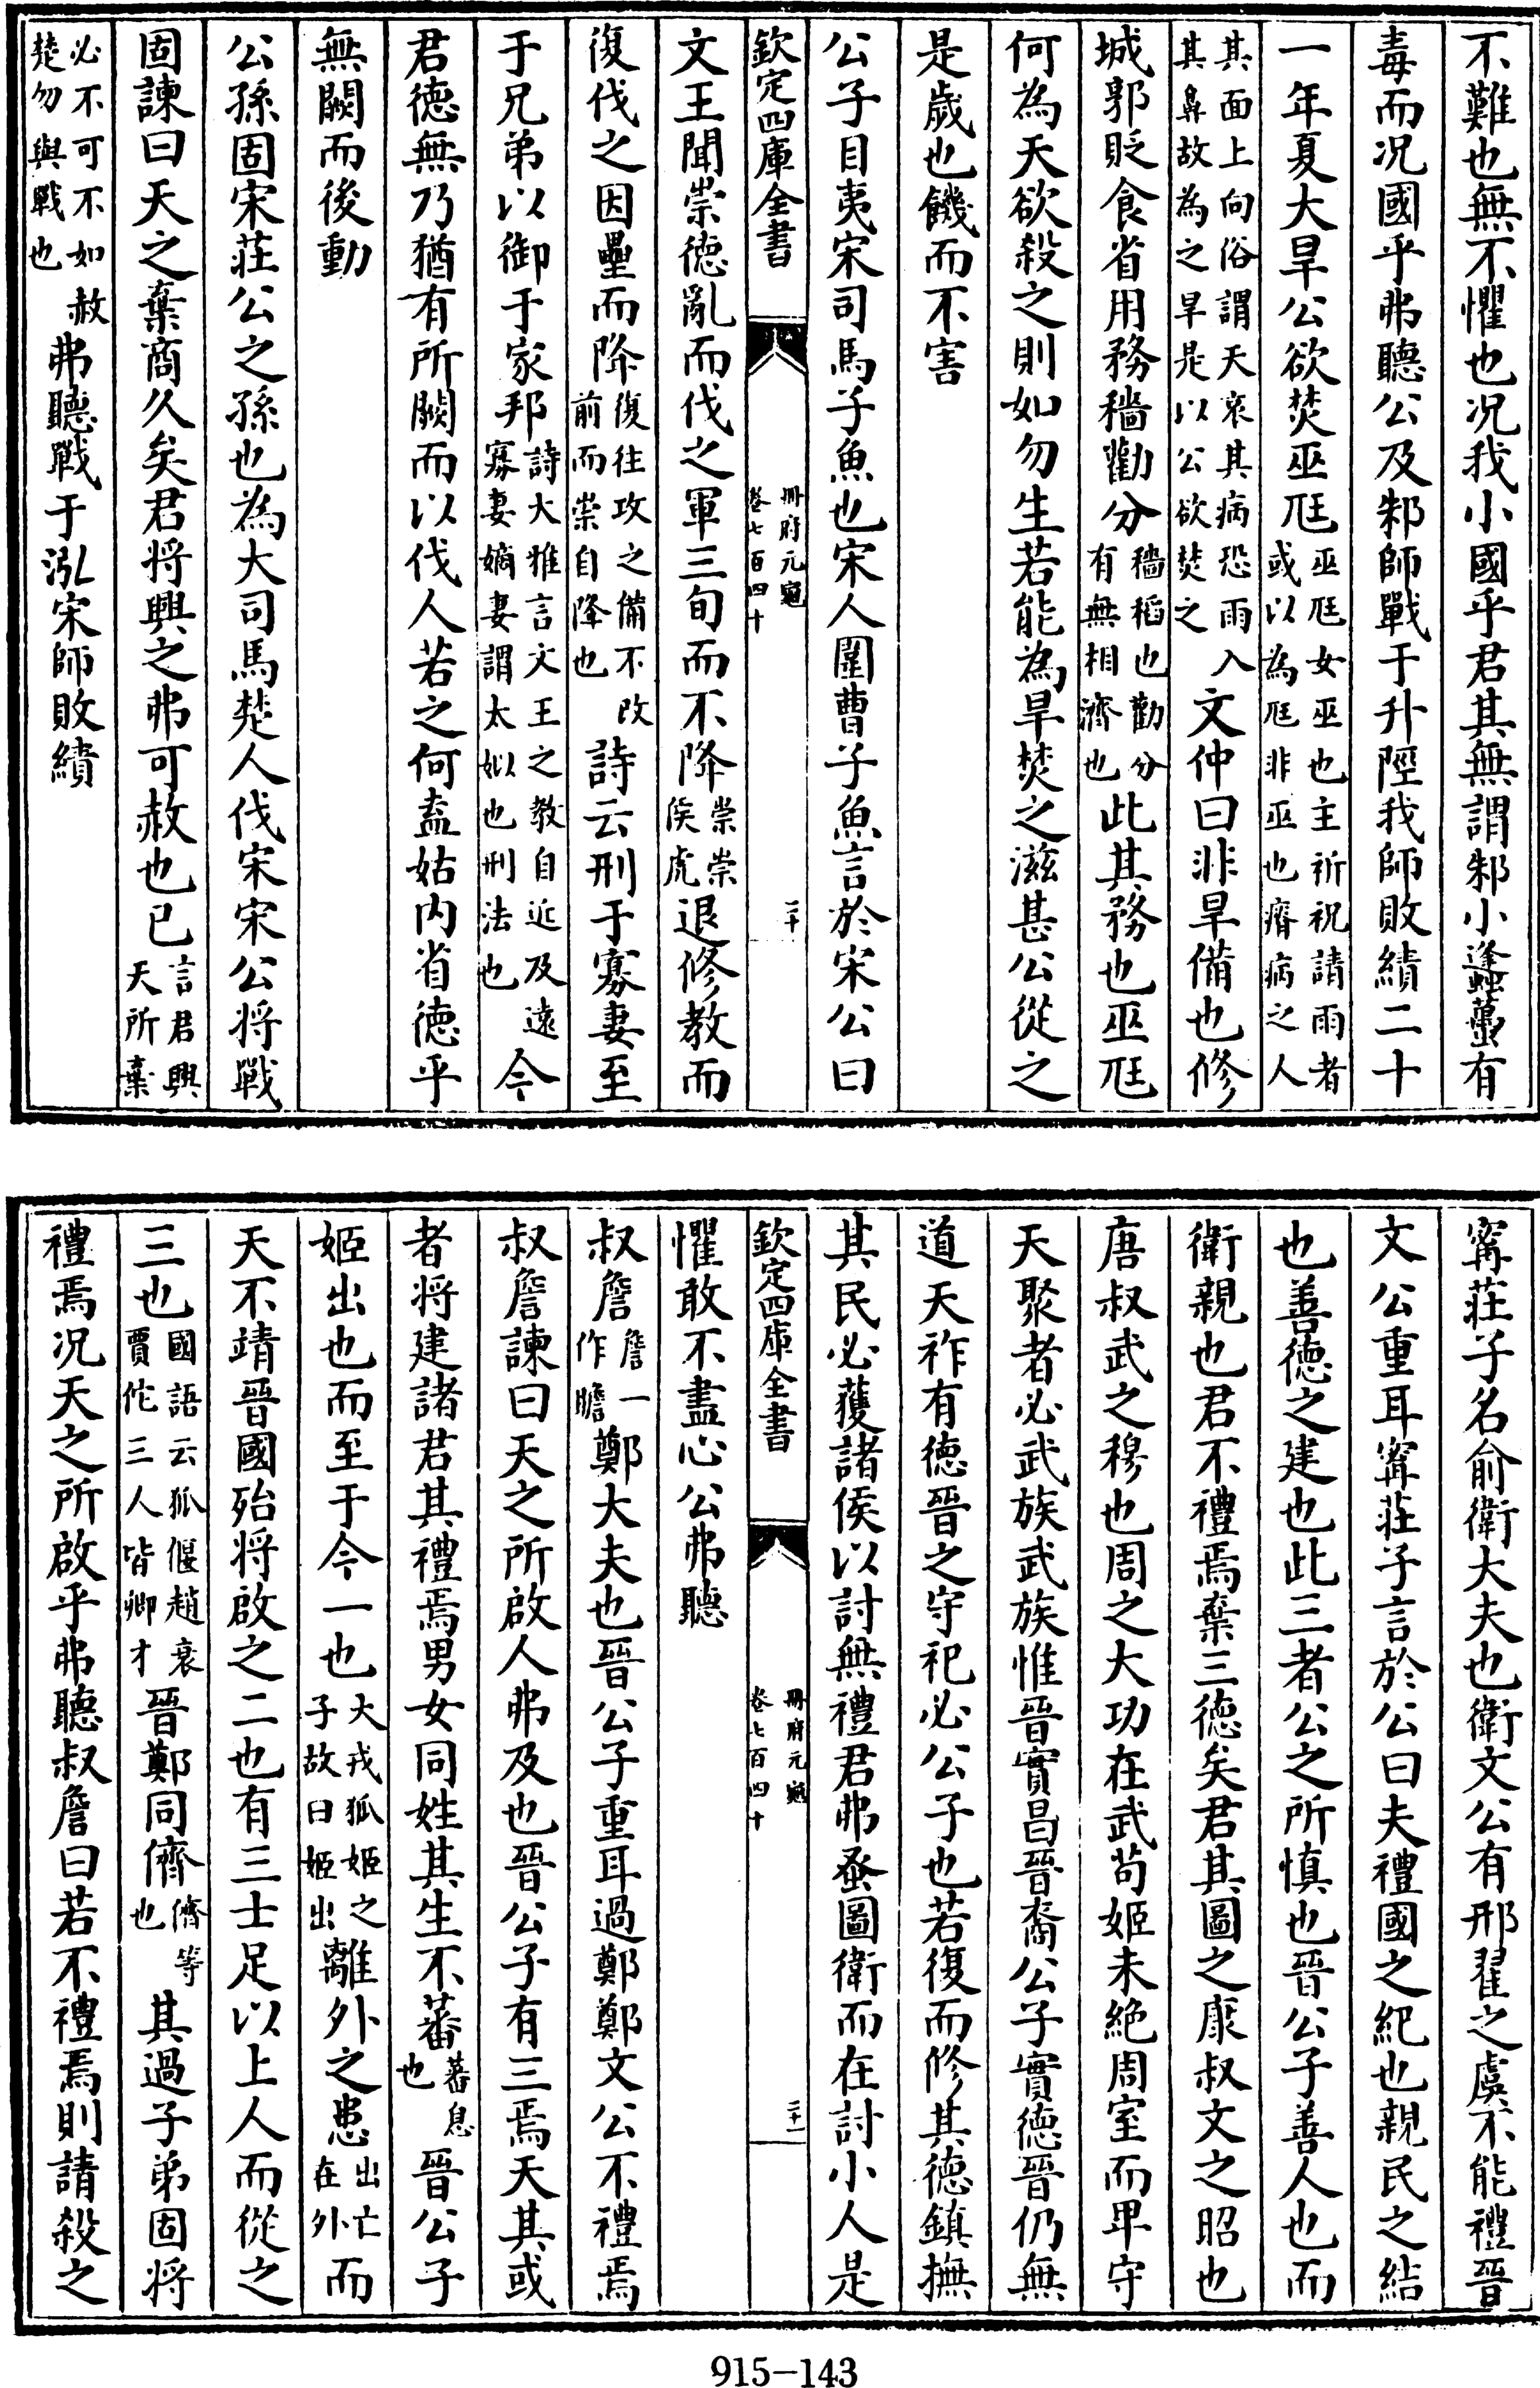 不難也無不懼也况我小國乎君其無謂邾小蠭蠆有
毒而况國乎弗聽公及邾師戰于升陘我師敗績二十
一年夏大旱公欲焚巫尪巫尪女巫也主祈祝請雨者或以為尪非巫也瘠病之人
其面上向俗謂天哀其病恐雨入其鼻故為之旱是以公欲焚之文仲曰非旱備也修
城郭貶食省用務穡勸分穡稻也勸分有無相濟也此其務也巫尪
何為天欲殺之則如勿生若能為旱焚之滋甚公從之
是歲也饑而不害
公子目夷宋司馬子魚也宋人圍曹子魚言於宋公曰
欽定四庫全書 冊府元龜卷七百四十 二十
文王聞崇德亂而伐之軍三旬而不降崇崇侯虎退修教而
復伐之因壘而降復往攻之備不改前而崇自降也詩云刑于寡妻至
于兄弟以御于家邦詩大雅言文王之教自近及遠寡妻嫡妻謂太姒也刑法也今
君德無乃猶有所闕而以伐人若之何盍姑内省德乎
無闕而後動
公孫固宋莊公之孫也為大司馬楚人伐宋宋公将戰
固諫曰天之棄商久矣君将興之弗可赦也已言君興天所棄
必不可不如赦楚勿與戰也弗聽戰于泓宋師敗績
甯莊子名俞衛大夫也衛文公有邢翟之虞不能禮晉
文公重耳甯莊子言於公曰夫禮國之紀也親民之結
也善德之建也此三者公之所慎也晉公子善人也而
衛親也君不禮焉棄三德矣君其圖之康叔文之昭也
唐叔武之穆也周之大功在武苟姬未絶周室而卑守
天聚者必武族武族惟晉實昌晉裔公子實德晉仍無
道天祚有德晉之守祀必公子也若復而修其德鎮撫
其民必獲諸侯以討無禮君弗蚤圖衛而在討小人是
欽定四庫全書 冊府元龜卷七百四十 二十一
懼敢不盡心公弗聽
叔詹詹一作瞻鄭大夫也晉公子重耳過鄭鄭文公不禮焉
叔詹諫曰天之所啟人弗及也晉公子有三焉天其或
者将建諸君其禮焉男女同姓其生不蕃蕃息也晉公子
姬出也而至于今一也大戎狐姬之子故曰姬出離外之患出亡在外而
天不靖晉國殆将啟之二也有三士足以上人而從之
三也國語云狐偃趙衰賈佗三人皆卿才晉鄭同儕儕等也其過子弟固将
禮焉况天之所啟乎弗聽叔詹曰若不禮焉則請殺之
915-143